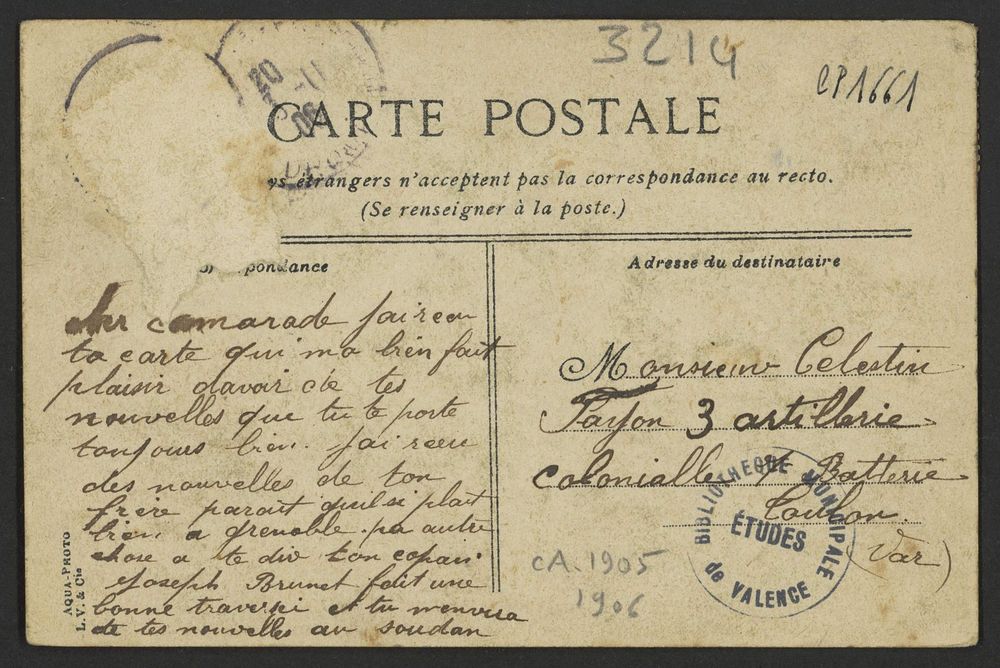 3214
CP1661
CARTE POSTALE
étrangers n'acceptent pas la correspondance au recto.
(Se renseigner à la poste.)
pondance
Adresse du destinataire
camarade jai recu
ta carte qui ma bien fait
plaisir davoir de tes
nouvelles que tu te porte
toujours bien. jai recu
des nouvelles de ton
frère parait quil si plait
bien a grenoble. pa autre
chose a te dir ton copain
Joseph Brunet fait une
bonne traversé et tu menvera
de tes nouvelles au soudan
Monsieur Celestin
Payon 3 artillerie
colonialle Batterie
Toulon
(Var)
BIBLIOTHEQUE MUNICIPALE
ÉTUDES
de VALENCE
CA. 1905
1906
AQUA-PHOTO
L. V. & Cie